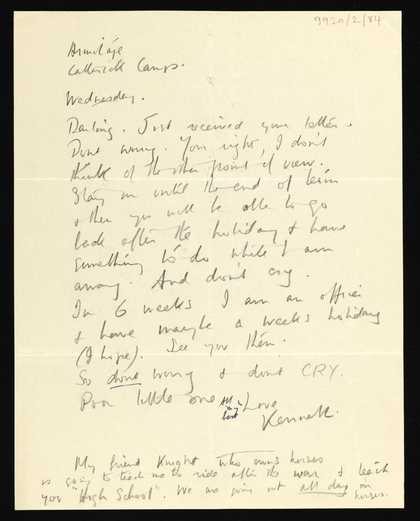 9920/2/84
Armitage
Catterick Camp.
Wednesday.
Darling. Just received your letter.
Dont worry. You right, I don't
think of the other point of view.
Stay on until the end of term
& then you will be able to go
back after the holiday & have
something to do while I am
away. And don't cry.
In 6 weeks I am an officer
& have maybe a weeks holiday
(I hope). See you then.
So dont worry & dont CRY.
Poor little one my love
best
Kenneth.
My friend Knight who owns horses
is going to teach me to ride after the war & teach
you "High School". We are going out all day on
horses.